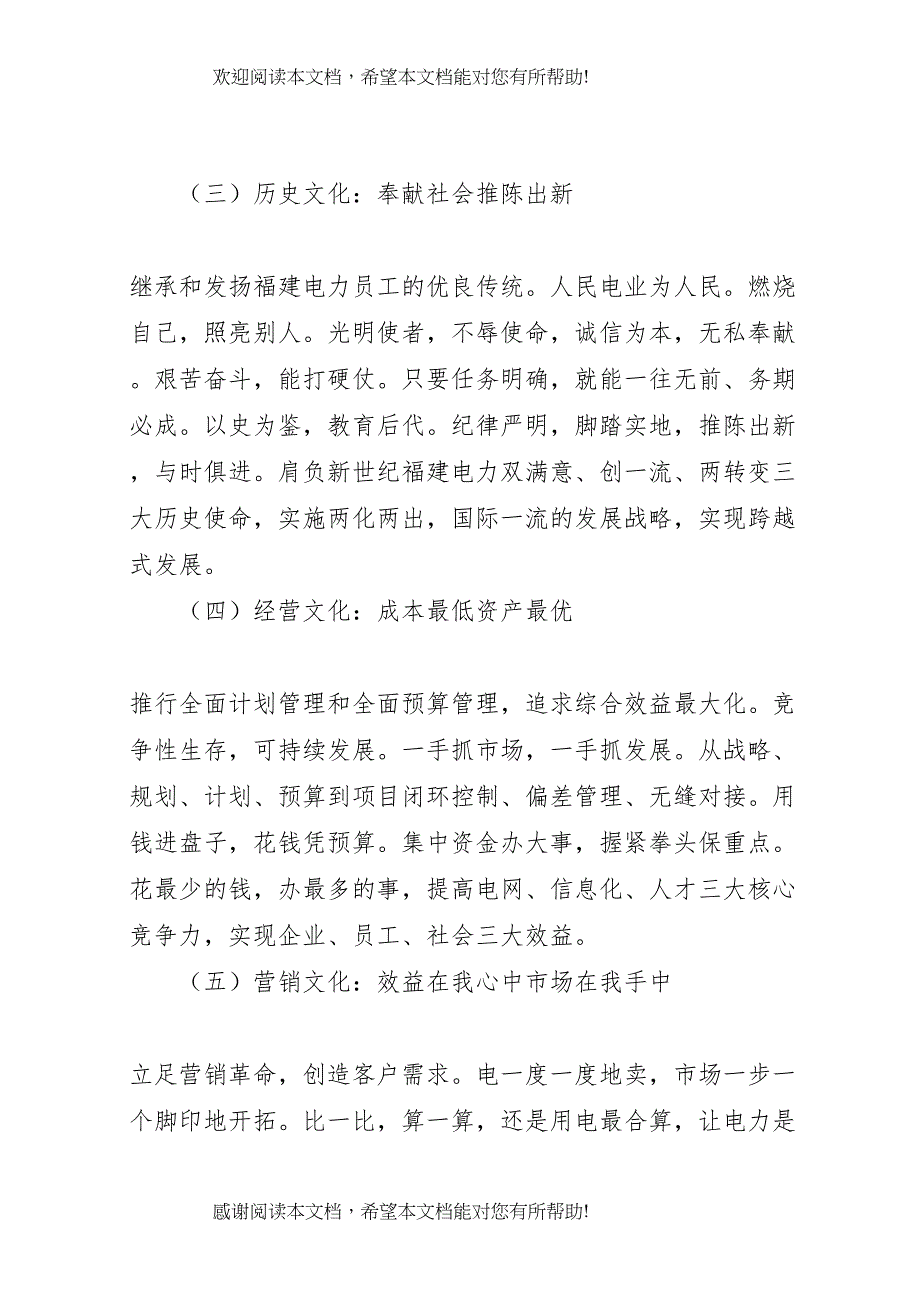 欢迎阅读本文档，希望本文档能对您有所帮助!
（三）历史文化：奉献社会推陈出新
继承和发扬福建电力员工的优良传统。人民电业为人民。燃烧
自己，照亮别人。光明使者，不辱使命，诚信为本，无私奉献
。艰苦奋斗，能打硬仗。只要任务明确，就能一往无前、务期
必成。以史为鉴，教育后代。纪律严明，脚踏实地，推陈出新
，与时俱进。肩负新世纪福建电力双满意、创一流、两转变三
大历史使命，实施两化两出，国际一流的发展战略，实现跨越
式发展。
（四）经营文化：成本最低资产最优
推行全面计划管理和全面预算管理，追求综合效益最大化。竞
争性生存，可持续发展。一手抓市场，一手抓发展。从战略、
规划、计划、预算到项目闭环控制、偏差管理、无缝对接。用
钱进盘子，花钱凭预算。集中资金办大事，握紧拳头保重点。
花最少的钱，办最多的事，提高电网、信息化、人才三大核心
竞争力，实现企业、员工、社会三大效益。
（五）营销文化：效益在我心中市场在我手中
立足营销革命，创造客户需求。电一度一度地卖，市场一步一
个脚印地开拓。比一比，算一算，还是用电最合算，让电力是
感谢阅读本文档，希望本文档能对您有所帮助!